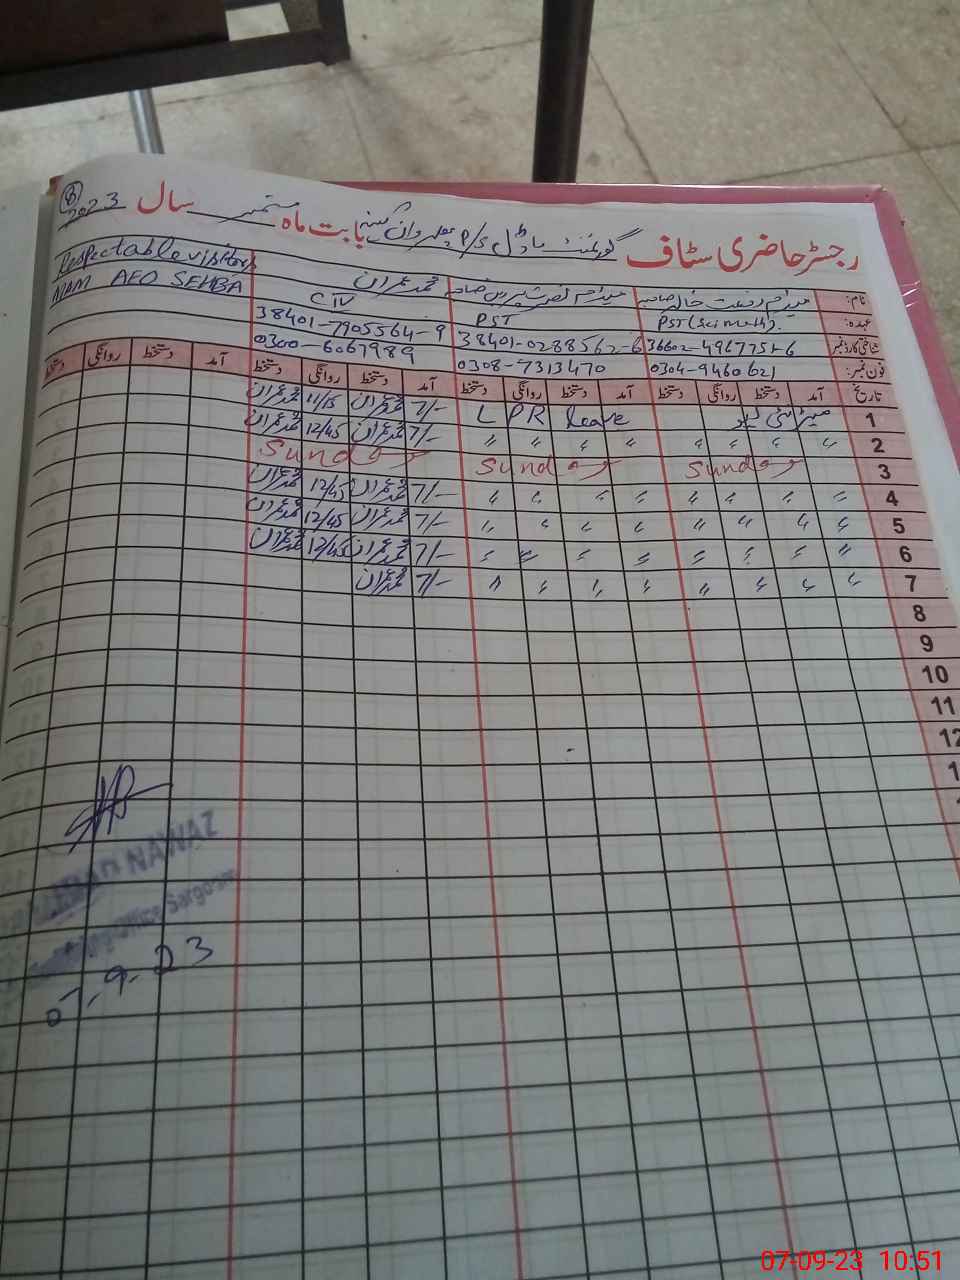 رجسٹر حاضری سٹاف گورنمنٹ ماڈل P/S بابت ماہ ستمبر سال 2023
8
نام: میڈم رفعت خالد صاحبہ میڈم نصرت پروین صاحبہ محمد عمران Respectable visitors
عہدہ: PST (Sci Math). PST CIV MAM AEO SEHBA
شناختی کارڈ نمبر 36602-4967751-6 38401-0288562-6 38401-7905564-9
فون نمبر: 0304-9460621 0308-7313470 0300-6067989
تاریخ آمد دستخط روانگی دستخط آمد دستخط روانگی دستخط آمد دستخط روانگی دستخط آمد دستخط روانگی دستخط
1 LPR leave 7/- محمد عمران 11/15 محمد عمران
2 〃 〃 〃 〃 〃 〃 〃 〃 7/- محمد عمران 12/45 محمد عمران
3 Sunday Sunday Sunday
4 〃 〃 〃 〃 〃 〃 〃 〃 7/- محمد عمران 12/45 محمد عمران
5 〃 〃 〃 〃 〃 〃 〃 〃 7/- محمد عمران 12/45 محمد عمران
6 〃 〃 〃 〃 〃 〃 〃 〃 7/- محمد عمران 12/45 محمد عمران
7 〃 〃 〃 〃 〃 〃 〃 〃 7/- محمد عمران
8
9
10
11
12
NAWAZ
Office Sargodha
07-09-23 10:51